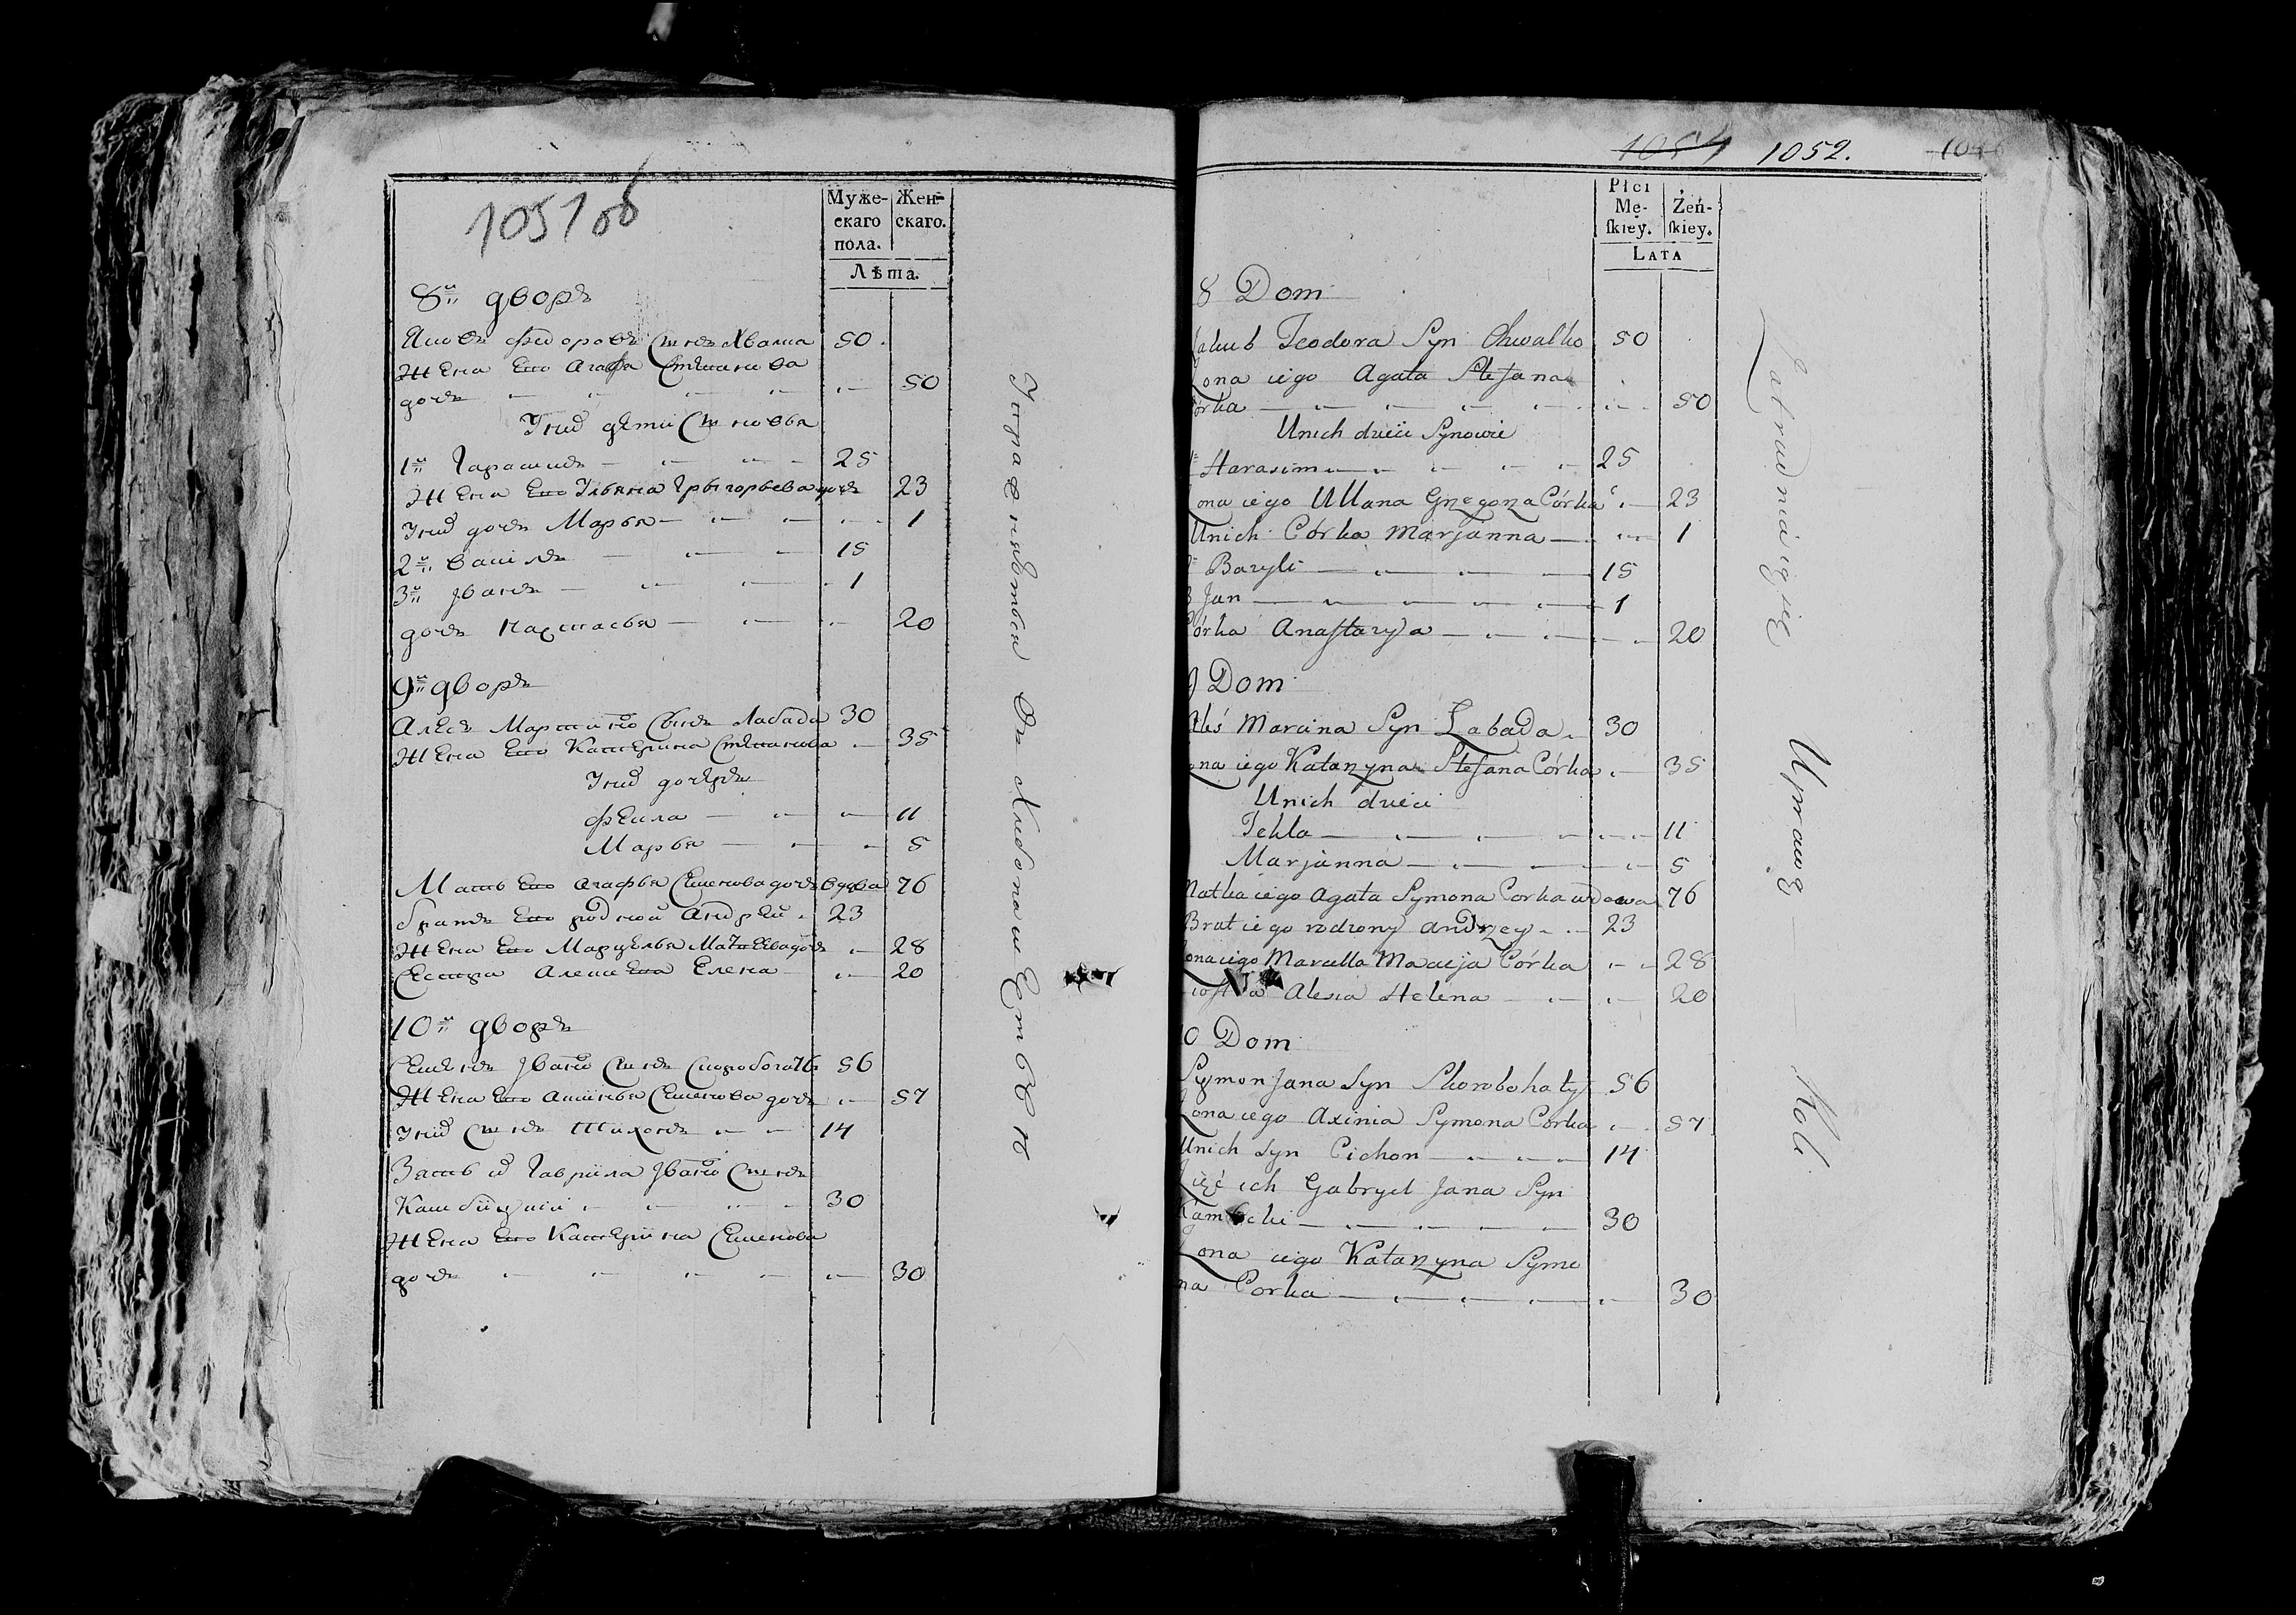 1051 об
Муже-
скаго
пола.
Жен-
скаго.
Лѣта.
8й дворъ
Яковъ Федоровъ Сынъ Хвалка 50
Жена Его Агафа Стѣпанова
дочь 50
У них дѣти Сыновья
1й Гарасимъ 25
Жена Его Ульяна Грыгорьева дочь 23
У них дочь Марья 1
2й Василь 15
3й Иванъ 1
дочь Настасья 20
9й дворъ
Алесь Мартина Сынъ Лабада 30
Жена Его Катерина Стѣпанова 35
У них дочери
Фекла 11
Марья 5
Мать Его Агафья Семенова дочь вдова 76
братъ Его родной Андрей 23
Жена Его Марцелья Матвеева дочь 28
Сестра Алеся Елена 20
10й дворъ
Семенъ Ивана Сынъ Скоробогатъ 56
Жена Его Аксинья Семенова дочь 57
У них Сынъ Тихонъ 14
Зять их Гаврила Ивана Сынъ
30
Жена Его Катерина Семенова
дочь 30
Упражняются в Хлебопашестве
1054 1052. 1046
Płci
Mę-
ſkiey.
Żeń-
ſkiey.
Lata
8 Dom
Jakub Teodora Syn Chwalko 50
Żona iego Agata Stefana
Córka 50
Unich dzieci Synowie
1 Harasim 25
Żona iego Ullana Grzegorza Córka 23
Unich Córka Marjanna 1
2 Bazyli 15
3 Jan 1
Córka Anastazya 20
9 Dom
Aleś Marcina Syn Labada 30
Żona iego Katarzyna Stefana Córka 35
Unich dzieci
Tekla 11
Marjanna 5
Matka iego Agata Symona Corka wdowa 76
Brat iego rodzony Andrzey 23
Żona iego Marcella Macieja Córka 28
Siostra Alesia Helena 20
10 Dom
Symon Jana Syn Skorobohaty 56
Żona iego Axinia Symona Corka 57
Unich Syn Cichon 14
Zięć ich Gabryel Jana Syn
30
Żona iego Katarzyna Symo
na Corka 30
Zatrudniaią się Uprawą Roli